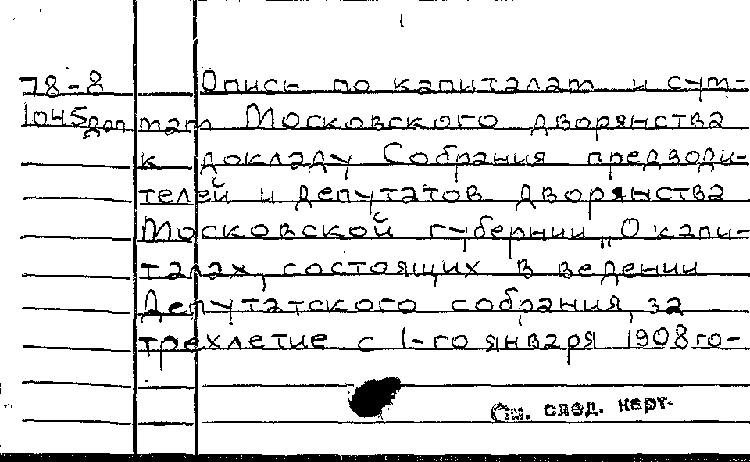 78-8 Опись по капиталам и сум-
1045доп мам Московского дворянства
к докладу Собрания предводи-
телей и депутатов дворянства
Московской губернии „О капи-
талах, состоящих в ведении
Депутатского собрания, за
трехлетие с 1-го января 1908 го-
См. след. карт.